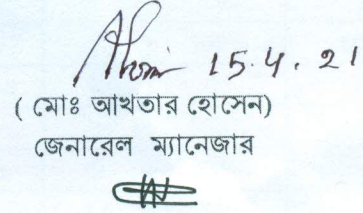 15.4.21
(মোঃ আখতার হোসেন)
জেনারেল ম্যানেজার